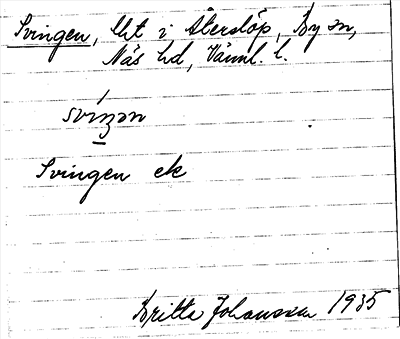 Svingen, lht i Återslöp, By sn,
Näs hd, Värml. l.
svíŋən
Svingen ek
Britta Johansson 1935